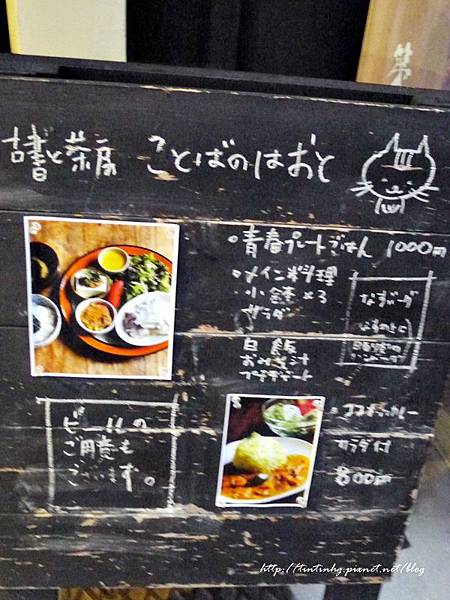 古書と茶房 ことばのはおと
・青春プレートごはん 1000円
・メイン料理
小鉢×3
サラダ
白飯
おみそ汁
プチデザート
ビールの
ご用意も
ございます。
サラダ付
800円
http://tintinhg.pixnet.net/blog